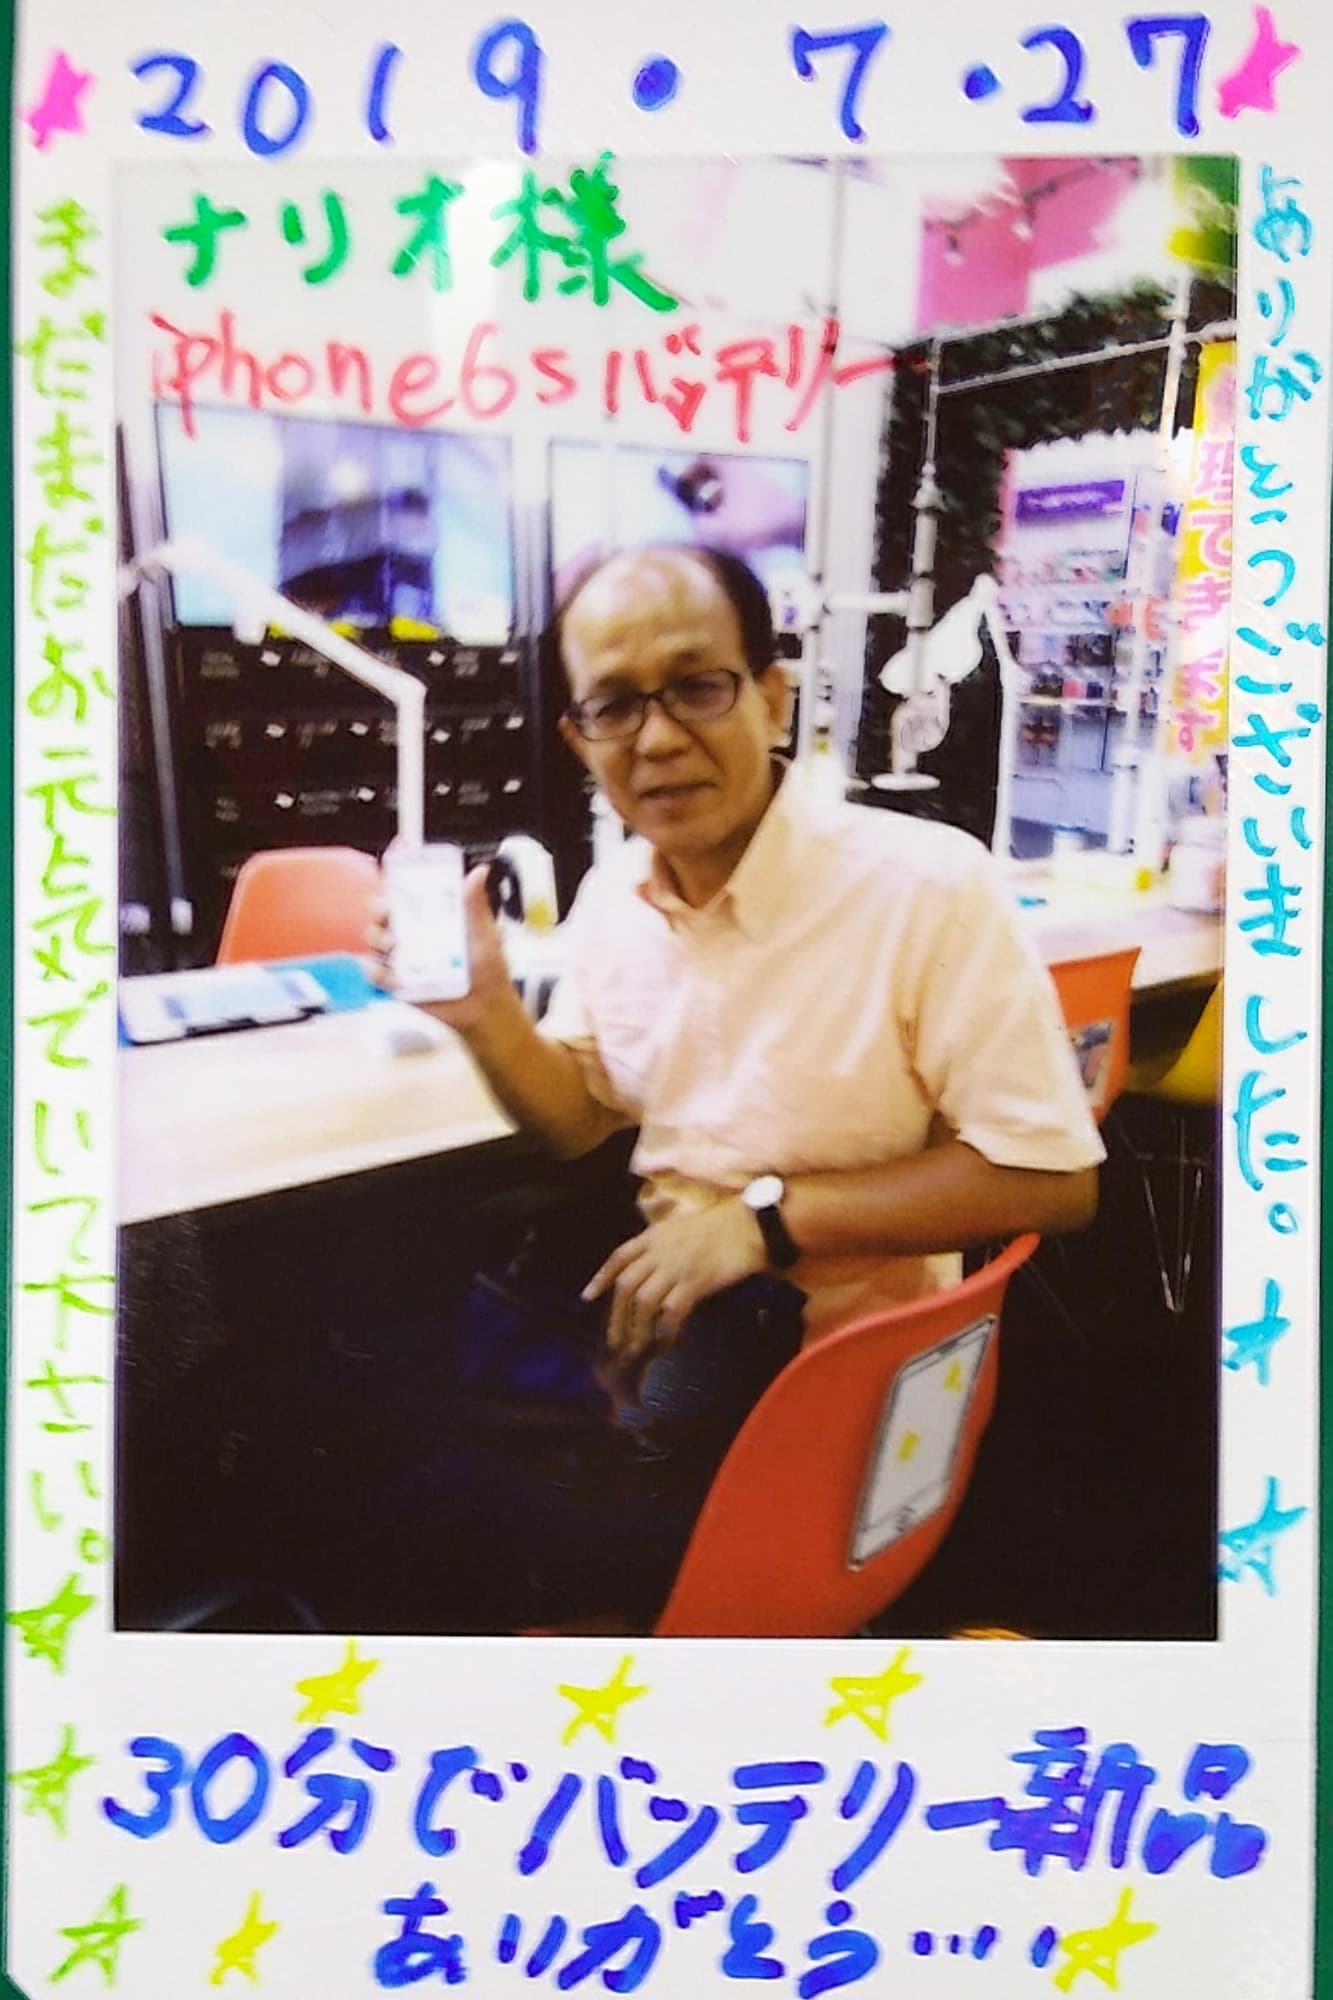 2019・7・27
ナリオ様
iphone6sバッテリー
ありがとうございました。
まだまだお元気でいてください。
30分でバッテリー新品
ありがとう…